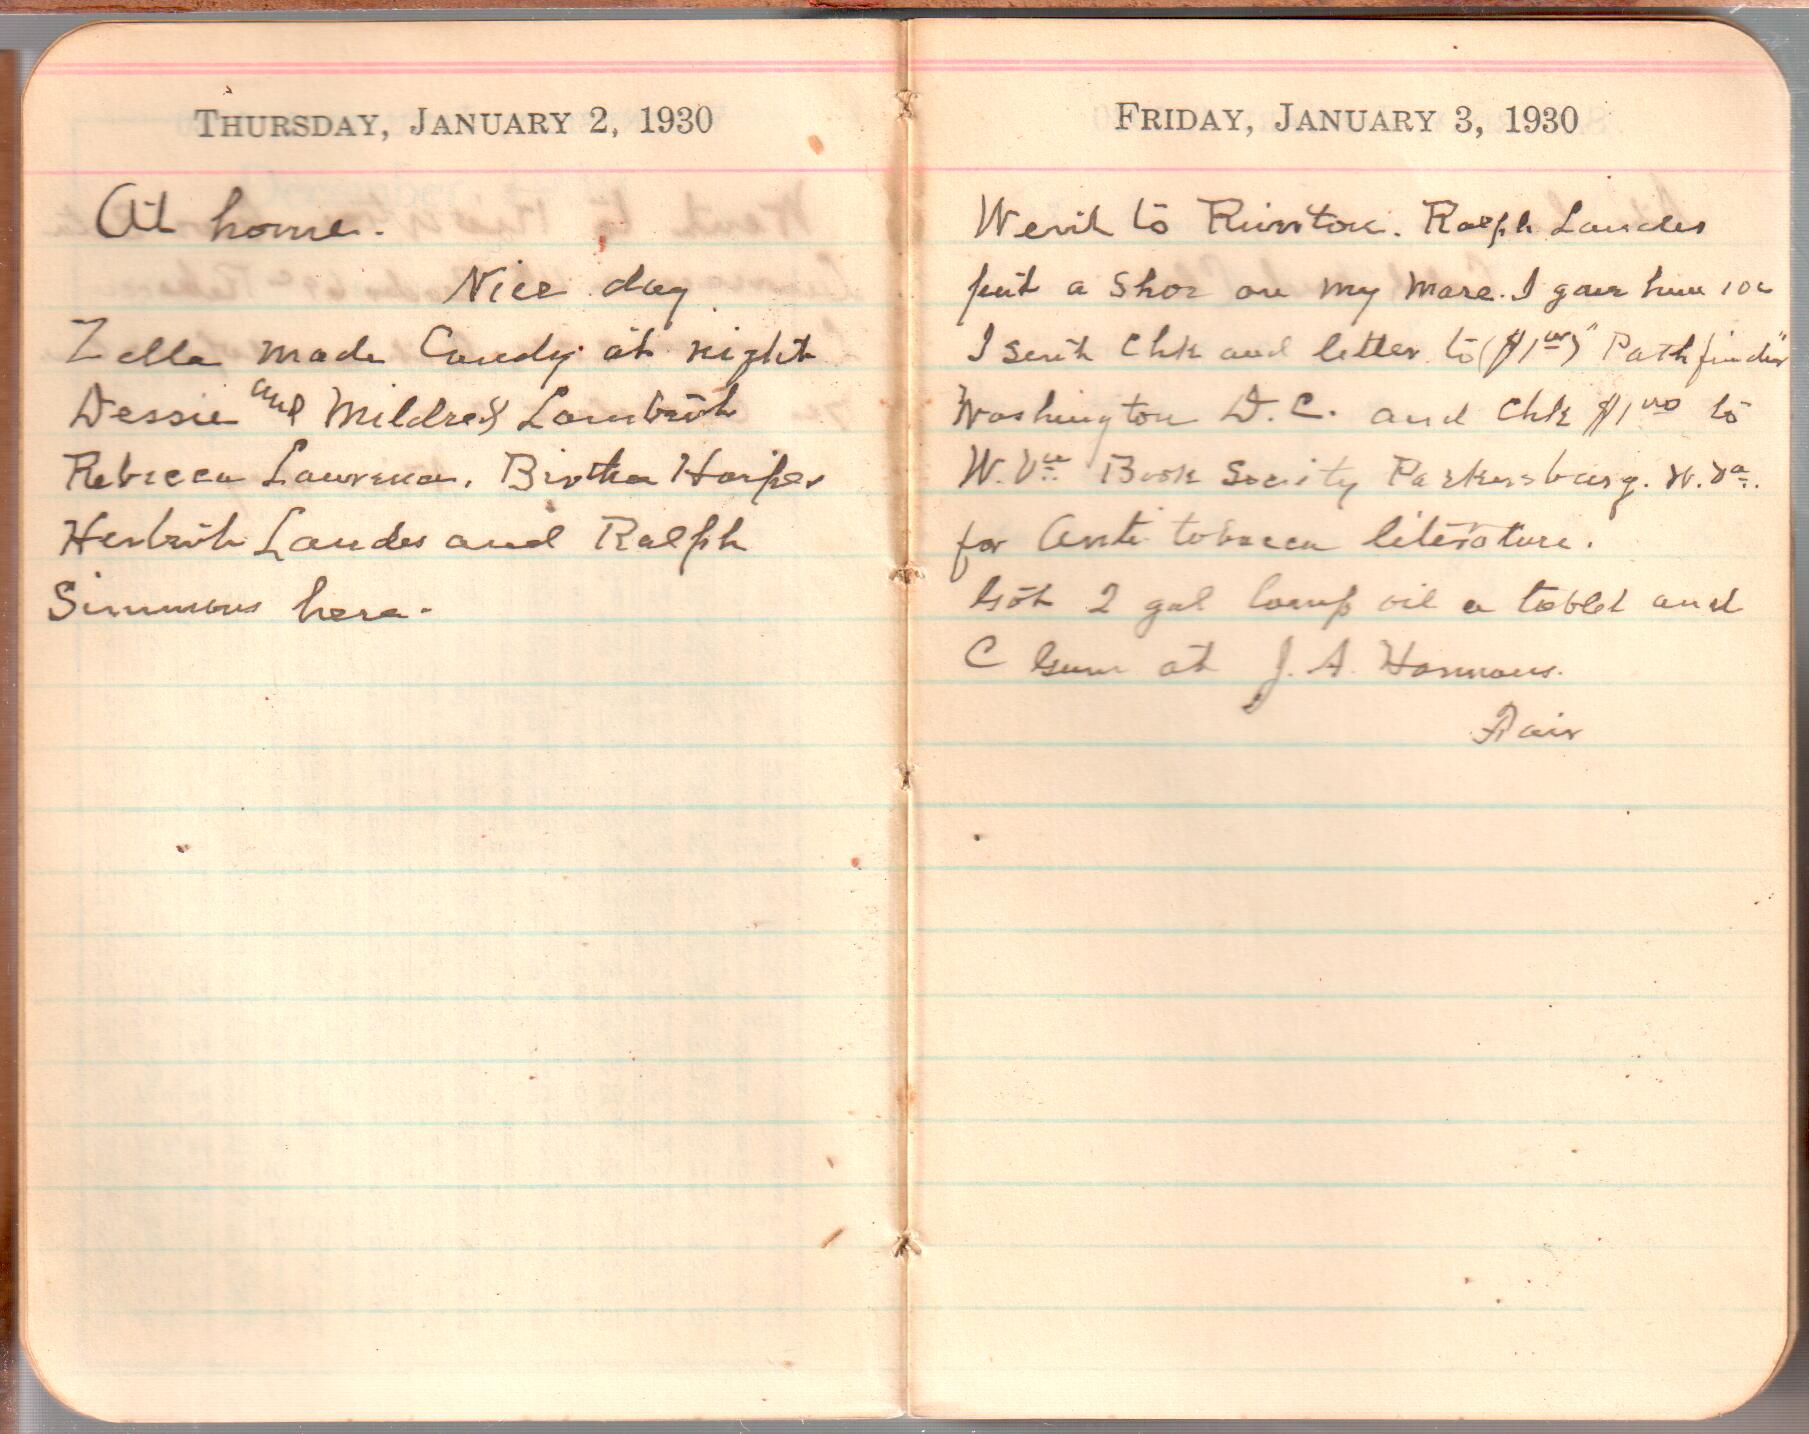 THURSDAY, JANUARY 2, 1930
At home.
Nice day
Zella made Candy at night
Dessie and Mildred Lambert
Rebecca Lawrence, Bertha Harper
Herbert Landes and Ralph
Simmons here.
FRIDAY, JANUARY 3, 1930
Went to Riverton. Ralph Landes
put a shoe on my mare. I gave him 10c
I sent Chk and letter to ($1.00) "Pathfinder"
Washington D.C. and Chk $1.00 to
W. Va. Book Society Parkersburg. W. Va.
for Anti tobacco literature.
Got 2 gal lamp oil a tablet and
C Gum at J. A. Harmans.
Fair